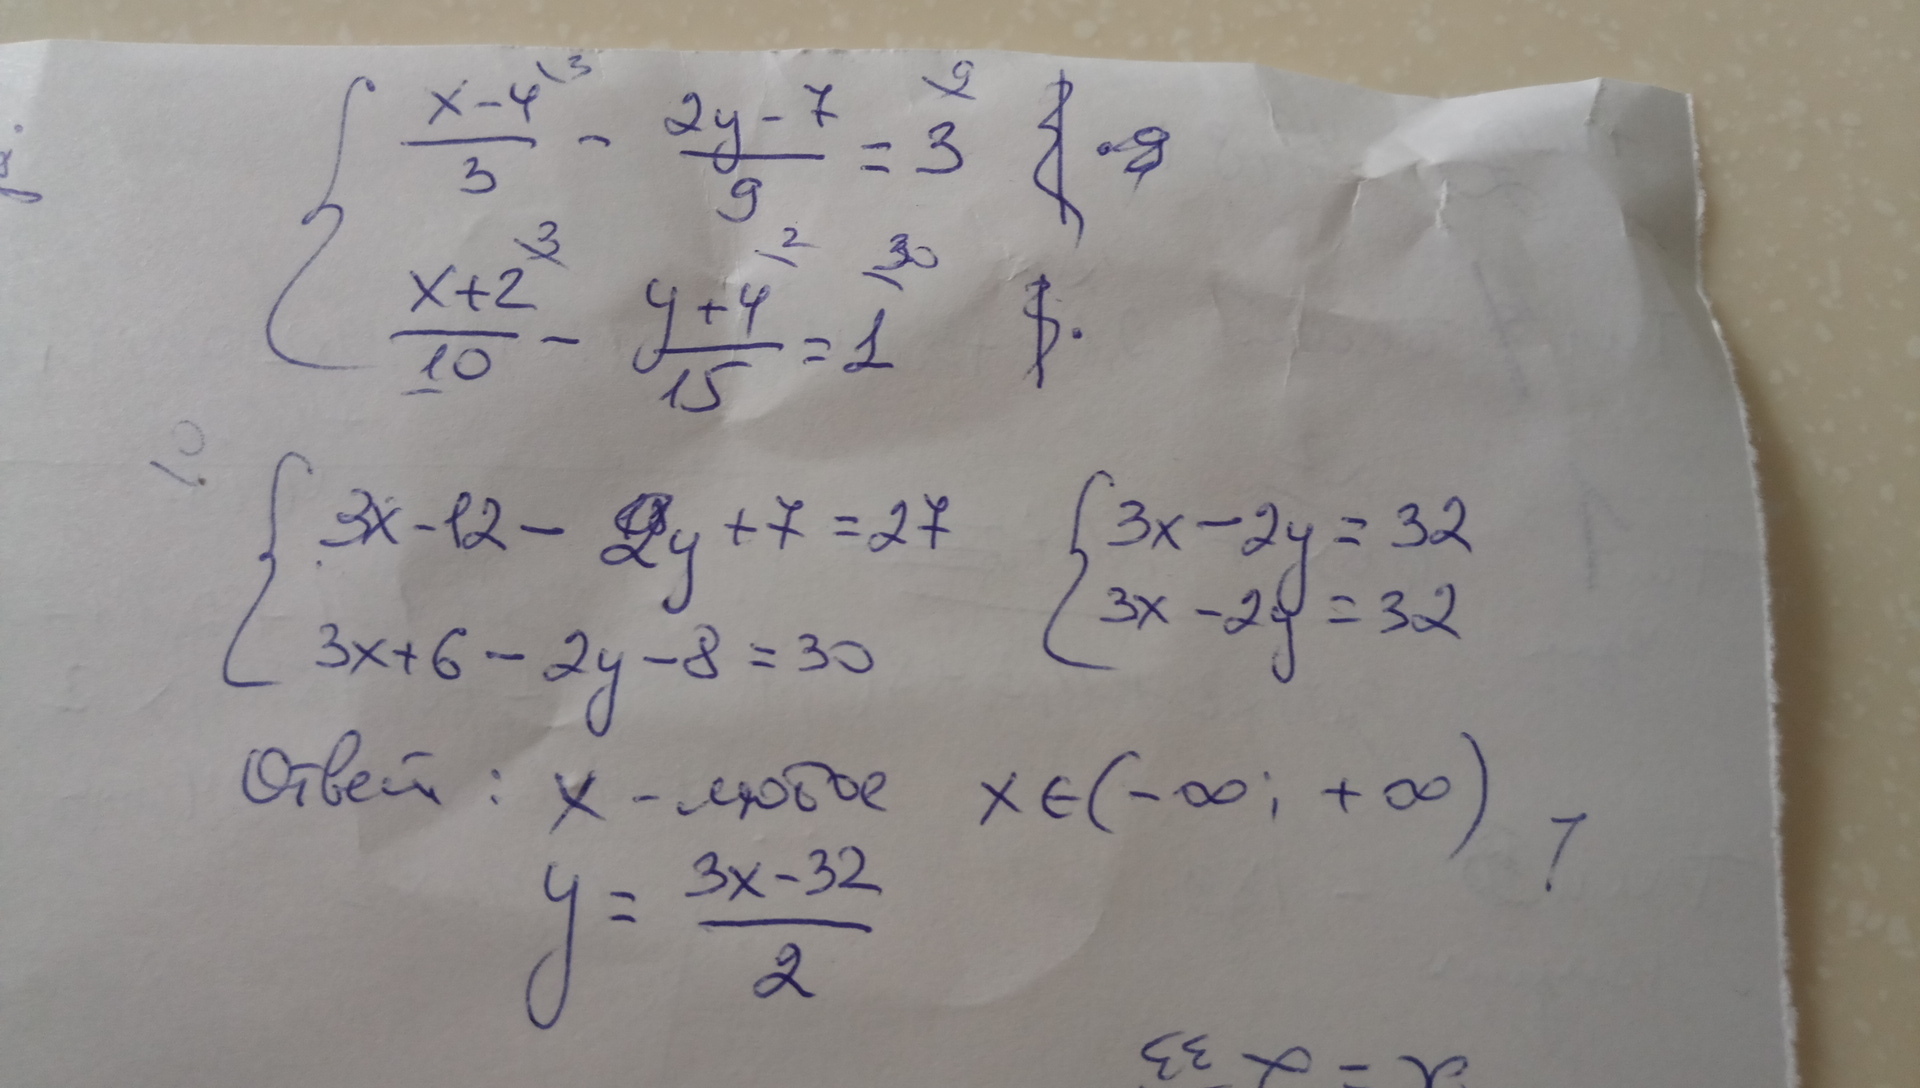 { (x-4)/3 \3 - (2y-7)/9 = 3 \9 | ·9
(x+2)/10 \3 - (y+4)/15 \2 = 1 \30 | ·
10
{ 3x-12-2y+7=27 { 3x-2y=32
3x+6-2y-8=30 3x-2y=32
Ответ: x - любое x∈(-∞; +∞)
y = (3x-32)/2